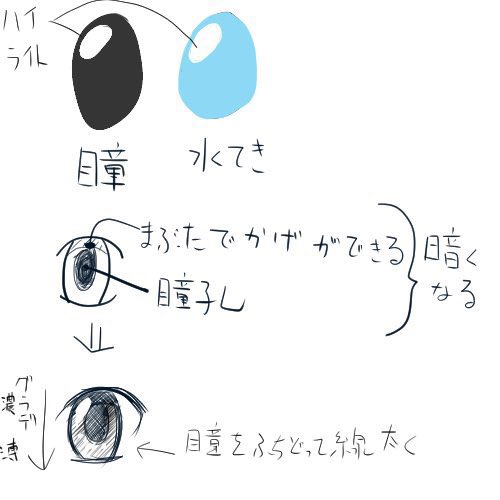 ハイ
ライト
瞳
水てき
まぶたでかげができる
瞳孔
暗く
なる
グラデ
濃
薄
瞳をふちどって線太く